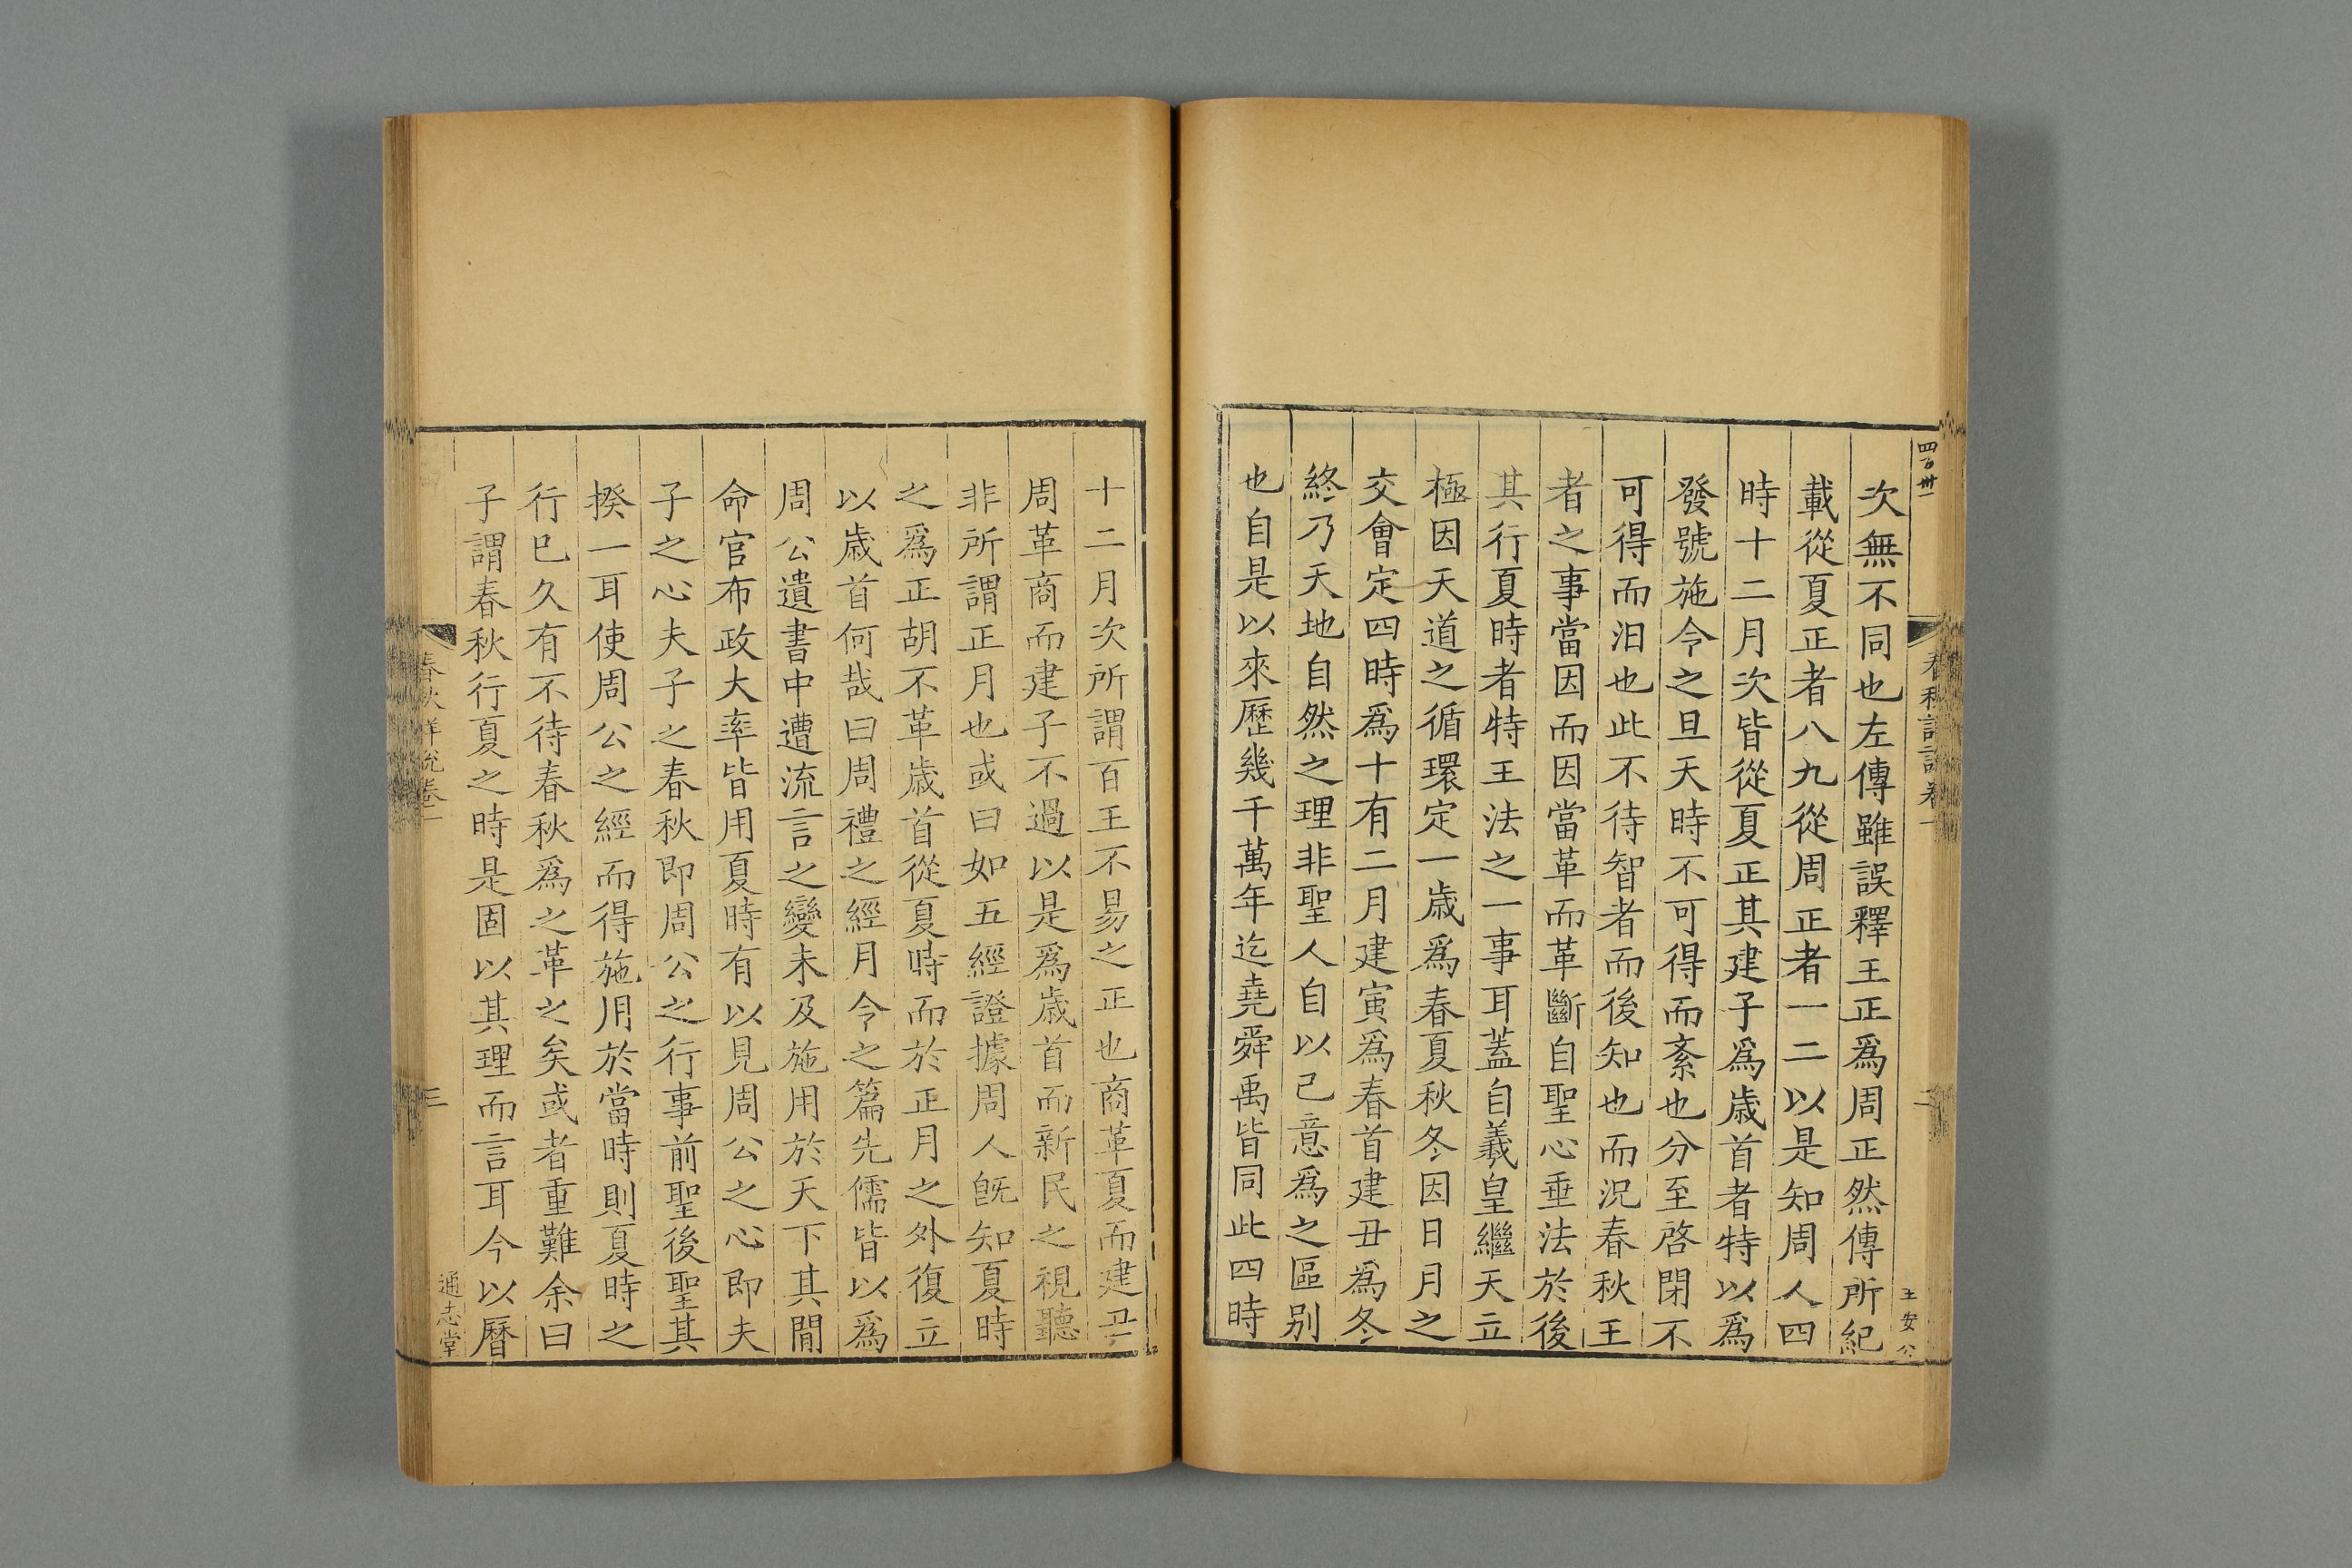 四百卅一
春秋詳說卷一
二
王安公
次無不同也左傳雖誤釋王正爲周正然傳所紀
載從夏正者八九從周正者一二以是知周人四
時十二月次皆從夏正其建子爲歲首者特以爲
發號施令之旦天時不可得而紊也分至啓閉不
可得而汨也此不待智者而後知也而況春秋王
者之事當因而因當革而革斷自聖心垂法於後
其行夏時者特王法之一事耳蓋自羲皇繼天立
極因天道之循環定一歲爲春夏秋冬因日月之
交會定四時爲十有二月建寅爲春首建丑爲冬
終乃天地自然之理非聖人自以己意爲之區别
也自是以來歷幾千萬年迄堯舜禹皆同此四時
十二月次所謂百王不易之正也商革夏而建丑
周革商而建子不過以是爲歲首而新民之視聽
非所謂正月也或曰如五經證據周人旣知夏時
之爲正胡不革歲首從夏時而於正月之外復立
以歲首何哉曰周禮之經月令之篇先儒皆以爲
周公遺書中遭流言之變未及施用於天下其間
命官布政大率皆用夏時有以見周公之心即夫
子之心夫子之春秋即周公之行事前聖後聖其
揆一耳使周公之經而得施用於當時則夏時之
行巳久有不待春秋爲之革之矣或者重難余曰
子謂春秋行夏之時是固以其理而言耳今以曆
春秋詳說卷一
三
通志堂